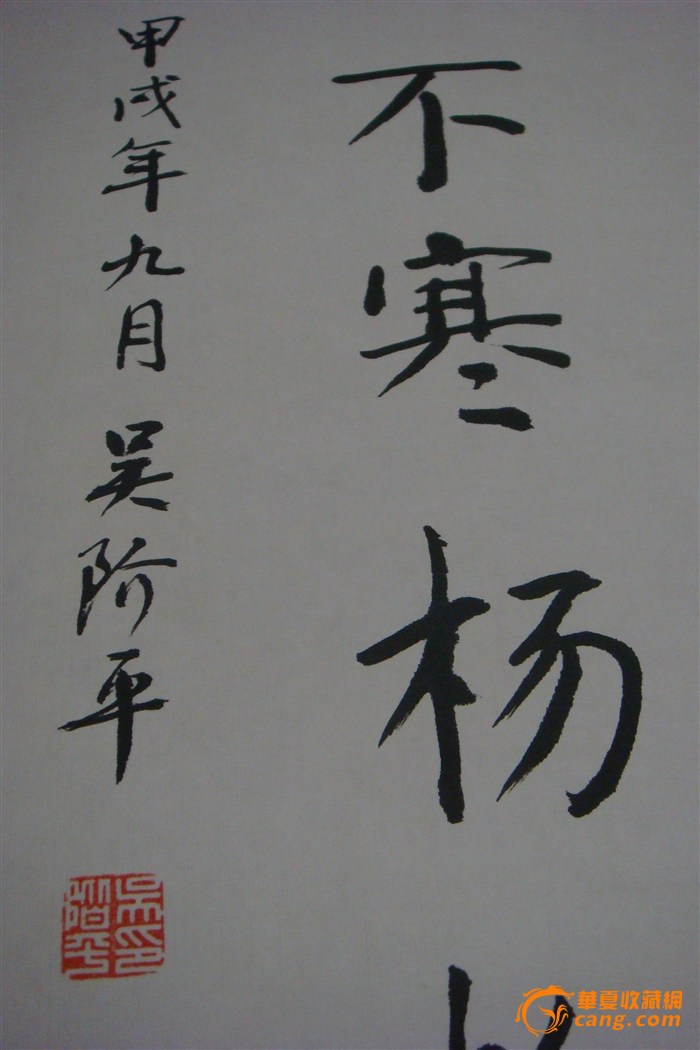 不寒杨
甲戌年九月吴阶平
吴阶平印
華夏收藏網
cang.com